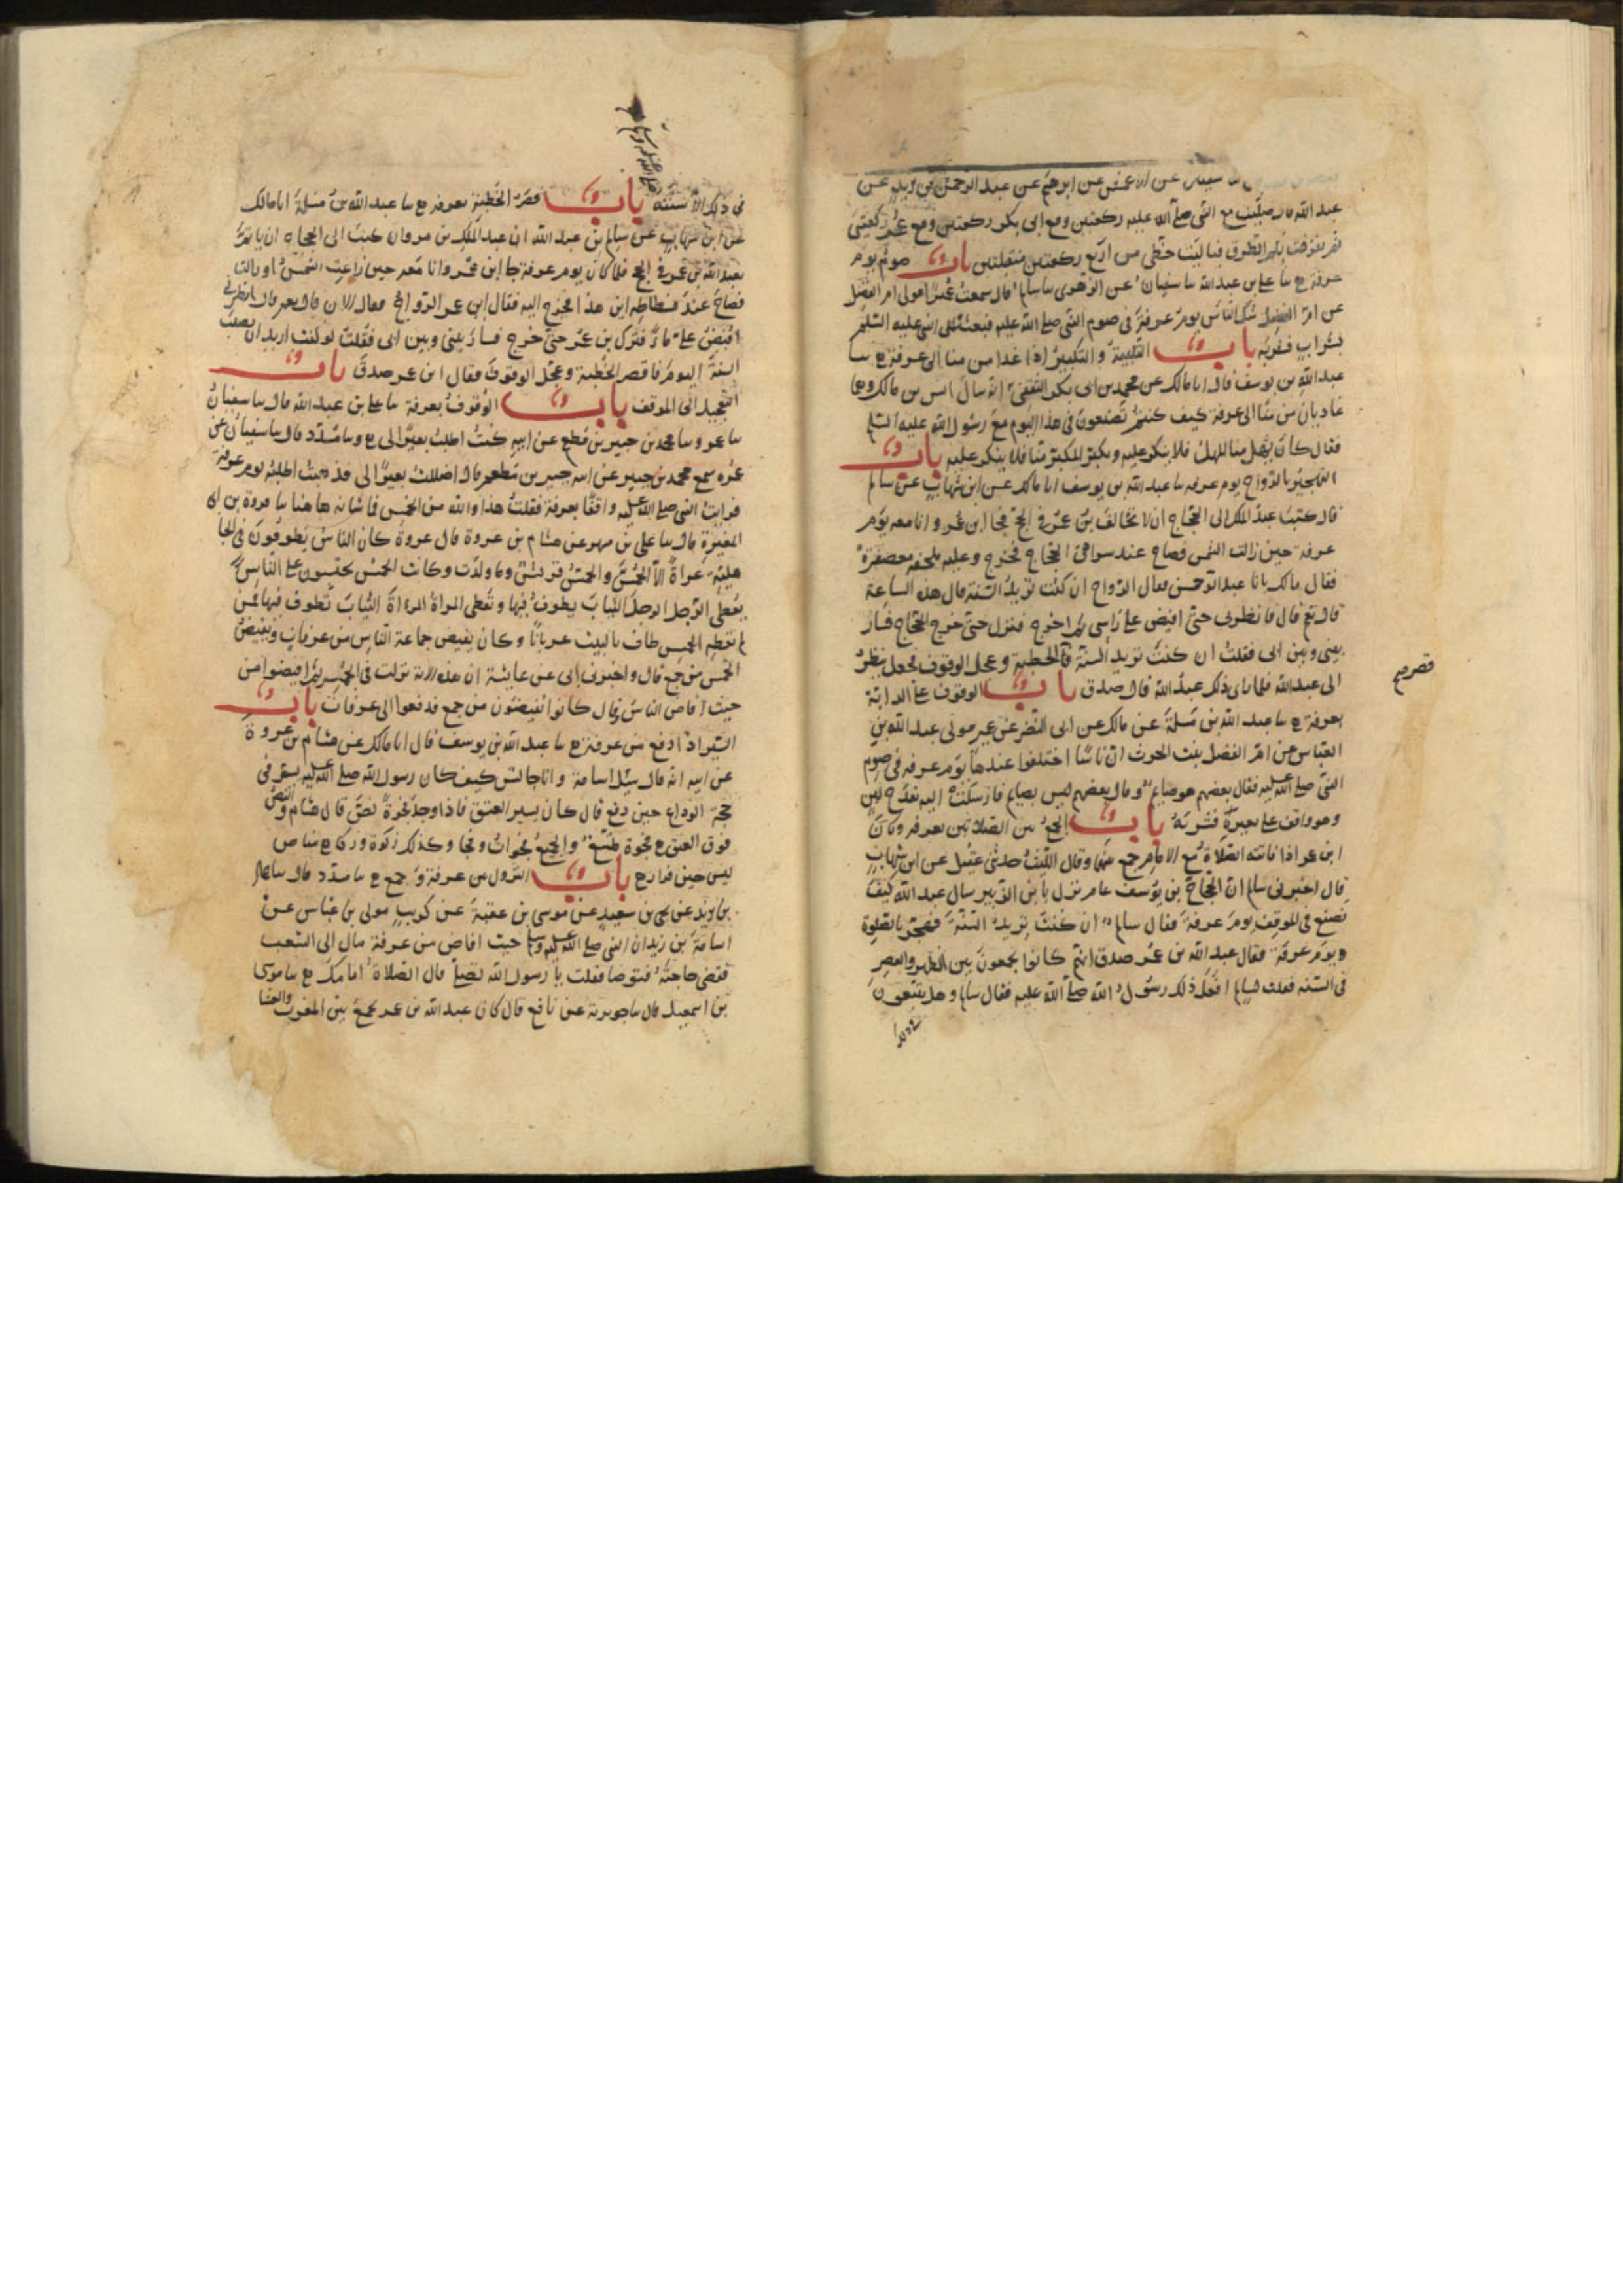 سفين عن الاعمش عن ابرهيم عن عبد الرحمن بن يزيد عن
عبد الله قال صليت مع النبي صلى الله عليه ركعتين ومع ابي بكر ركعتين ومع عمر ركعتين
ثم تفرقت بكم الطرق فياليت حظي من اربع ركعتين متقبلتين باب صوم يوم
عرفة ع سا علي بن عبد الله سا سفيان عن الزهري سا سالم قال سمعت عميرا مولى ام الفضل
عن ام الفضل شك الناس يوم عرفة في صوم النبي صلى الله عليه فبعثت الى النبي عليه السلم
بشراب فشربه باب التلبية والتكبير اذا غدا من منا الى عرفة ع سا
عبد الله بن يوسف قال انا مالك عن محمد بن ابي بكر الثقفي انه سال انس بن مالك وهما
غاديان من منا الى عرفة كيف كنتم تصنعون في هذا اليوم مع رسول الله عليه السلم
فقال كان يهل منا المهل فلا ينكر عليه ويكبر المكبر منا فلا ينكر عليه باب
التهجير بالرواح يوم عرفه سا عبد الله بن يوسف انا مالك عن ابن شهاب عن سالم
قال كتب عبد الملك الى الحجاج ان لا تخالف بن عمر في الحج فجا ابن عمر وانا معه يوم
عرفة حين زالت الشمس فصاح عند سرادق الحجاج فخرج وعليه ملحفه معصفرة
فقال مالك يابا عبد الرحمن فقال الرواح ان كنت تريد السنة قال هذه الساعة
قال نعم قال فانظرني حتى افيض على راسي ثم اخرج فنزل حتى خرج الحجاج فسار
بيني وبين ابي فقلت ان كنت تريد السنة فالخطبة وعجل الوقوف فجعل ينظر
الى عبد الله فلما راى ذلك عبد الله قال صدق باب الوقوف على الدابة
بعرفة ع سا عبد الله بن مسلمة عن مالك عن ابي النضر عن عمير مولى عبد الله بن
العباس عن ام الفضل بنت الحرث ان ناسا اختلفوا عندها يوم عرفه في صوم
النبي صلى الله عليه فقال بعضهم هو صايم وقال بعضهم ليس بصايم فارسلت اليه بقدح لبن
وهو واقف على بعيره فشربه باب الجمع بين الصلاتين بعرفه وكان
ابن عمر اذا فاتته الصلاة مع الامام جمع بينهما وقال الليث حدثني عقيل عن ابن شهاب
قال اخبرني سالم ان الحجاج بن يوسف عام نزل بابن الزبير سال عبد الله كيف
تصنع في الموقف يوم عرفة فقال سالم ان كنت تريد السنة فهجر بالصلوة
ويوم عرفة فقال عبد الله بن عمر صدق انهم كانوا يجمعون بين الظهر والعصر
في السنه فقلت لسالم افعل ذلك رسول الله صلى الله عليه فقال سالم وهل يتبعون
قصر
في ذلك الا سنته باب قصر الخطبة بعرفه ع سا عبد الله بن مسلمة انا مالك
صلى الله عليه وسلم
عن ابن شهاب عن سالم بن عبد الله ان عبد الملك بن مروان كتب الى الحجاج ان ياتم
بعبد الله بن عمر في الحج فلما كان يوم عرفة جا ابن عمر وانا معه حين زاغت الشمس او زالت
فصاح عند فسطاطه اين هذا فخرج اليه فقال ابن عمر الرواح فقال الان قال نعم قال انظرني
افيض علي ما فنزل بن عمر حتى خرج فسار بيني وبين ابي فقلت لو كنت تريد ان تصيب
السنة اليوم فاقصر الخطبة وعجل الوقوف فقال ابن عمر صدق باب
التعجيل الى الموقف باب الوقوف بعرفة سا علي بن عبد الله قال سا سفيان
سا عمرو سا محمد بن جبير بن مطعم عن ابيه كنت اطلب بعيرا لي ع وسا مسدد قال سا سفيان عن
عمرو سمع محمد بن جبير عن ابيه جبير بن مطعم قال اضللت بعيرا لي فذهبت اطلبه يوم عرفة
فرايت النبي صلى الله عليه واقفا بعرفة فقلت هذا والله من الحمس فما شانه هاهنا سا فروة بن ابي
المغيرة قال سا علي بن مسهر عن هشام بن عروة قال عروة كان الناس يطوفون في الجا
هلية عراة الا الحمس والحمس قريش وما ولدت وكانت الحمس يحتسبون على الناس
يعطي الرجل الرجل الثياب يطوف فيها وتعطي المراة المراة الثياب تطوف فيها فمن
لم تعطه الحمس طاف بالبيت عريانا وكان يفيض جماعة الناس من عرفات ويفيض
الحمس من جمع قال واخبرني ابي عن عايشة ان هذه الاية نزلت في الحمس ثم افيضوا من
حيث افاض الناس قال كانوا يفيضون من جمع فدفعوا الى عرفات باب
السير اذا دفع من عرفة ع سا عبد الله بن يوسف قال انا مالك عن هشام بن عروة
عن ابيه انه قال سيل اسامة وانا جالس كيف كان رسول الله صلى الله عليه يسير في
حجة الوداع حين دفع قال كان يسير العنق فاذا وجد فجوة نص قال هشام والنص
فوق العنق ع فجوة متسع والجميع فجوات وفجا وكذلك ركوة وركا ع مناص
ليس حين فرار ع باب النزول بين عرفة وجمع ع سا مسدد قال سا حماد
بن زيد عن يحيى بن سعيد عن موسى بن عقبة عن كريب مولى بن عباس عن
اسامة بن زيد ان النبي صلى الله عليه وسلم حيث افاض من عرفة مال الى الشعب
فقضى حاجته فتوضا فقلت يا رسول الله تصلي قال الصلاة امامك ع سا موسى
بن اسمعيل قال سا جويرية عن نافع قال كان عبد الله بن عمر يجمع بين المغرب والعشا